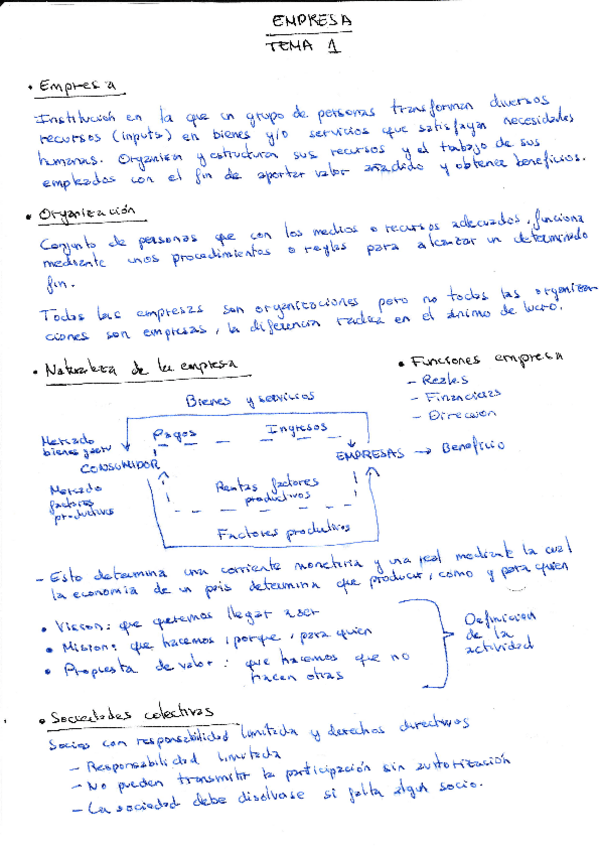 EMPRESA
TEMA 1
• Empresa
Institución en la que un grupo de personas transforman diversos
recursos (inputs) en bienes y/o servicios que satisfagan necesidades
humanas. Organisan y estructura sus recursos y el trabajo de sus
empleados con el fin de aportar valor añadido y obtener beneficios.
• Organización
Conjunto de personas que con los medios o recursos adecuados, funciona
mediante unos procedimientos o reglas para alcanzar un determinado
fin.
Todas las empresas son organizaciones pero no todas las organiza-
ciones son empresas, la diferencia radica en el ánimo de lucro.
• Naturaleza de la empresa
• Funciones empresa
- Reales
- Financieras
- Direccion
Bienes y servicios
Mercado
bienes y serv
Pagos
Ingresos
CONSUMIDOR
EMPRESAS → Beneficio
Mercado
factores
productivos
Rentas factores
productivos
Factores productivos
- Esto determina una corriente monetaria y una real mediante la cual
la economia de un pais determina que producir, como y para quien
• Vision: que queremos llegar a ser
• Mision: que hacemos, porque, para quien
• Propuesta de valor: que hacemos que no
hacen otras
Definicion
de la
actividad
• Sociedades colectivas
Socios con responsabilidad limitada y derechos directivos
- Responsabilidad limitada
- No pueden transmitir la participación sin autorización
- La sociedad debe disolverse si falta algun socio.